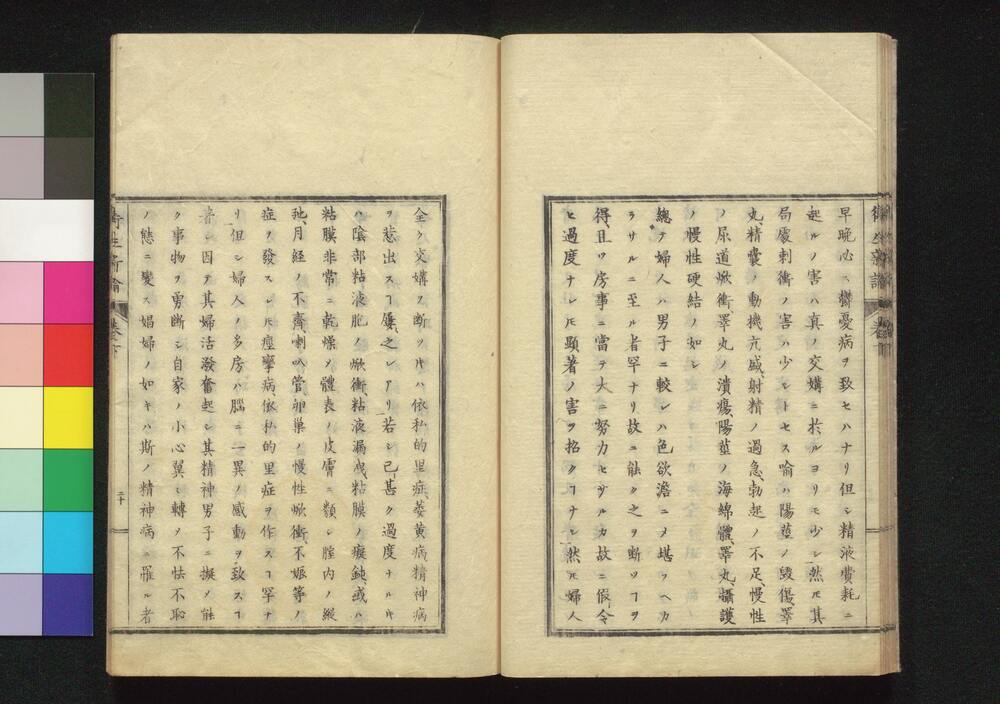 早晩必ス欝憂病ヲ致セハナリ但シ精液費耗ニ
起ルノ害ハ真ノ交媾ニ於ルヨリモ少シ然𪜈其
局處刺衝ノ害ハ少シトセス喩ハ陽莖ノ毀傷睾
丸精嚢ノ動機亢盛、射精ノ過急、勃起ノ不足、慢性
ノ尿道焮衝、睪丸ノ潰瘍、陽莖ノ海綿體、睪丸、攝護
ノ慢性硬結ノ如シ
總テ婦人ハ男子ニ較レハ色欲澹ニメ堪フヘカ
ラサルニ至ル者罕ナリ故ニ能ク之ヲ斷ツヿヲ
得、且ツ房事ニ當テ大ニ努力セサルカ故ニ假令
ヒ過度ナレ𪜈顯著ノ害ヲ招クヿナシ然𪜈婦人
全ク交媾ヲ斷ツ𪜈ハ依私的里症、萎黄病、精神病
ヲ惹出スヿ屢之レアリ若シ已甚ク過度ナル𪜈
ハ陰部粘液肥ノ焮衝、粘液漏洩、粘膜ノ癡鈍、或ハ
粘膜非常ニ乾燥メ體表ノ皮膚ニ類シ腟内ノ緩
弛、月經ノ不齊、喇叭管、卵巣ノ慢性焮衝、不娠等ノ
症ヲ發スレ𪜈痙攣病、依私的里症ヲ作スヿ罕ナ
リ但シ婦人ノ多房ハ腦ニ一異ノ感動ヲ致スヿ
著シ因テ其婦活潑奮起シ其精神男子ニ擬メ能
ク事物ヲ勇斷シ自家ノ小心翼シ轉ヲ不怯不恥
ノ態ニ變ス娼婦ノ如キハ斯ノ精神病ニ罹ル者
二十